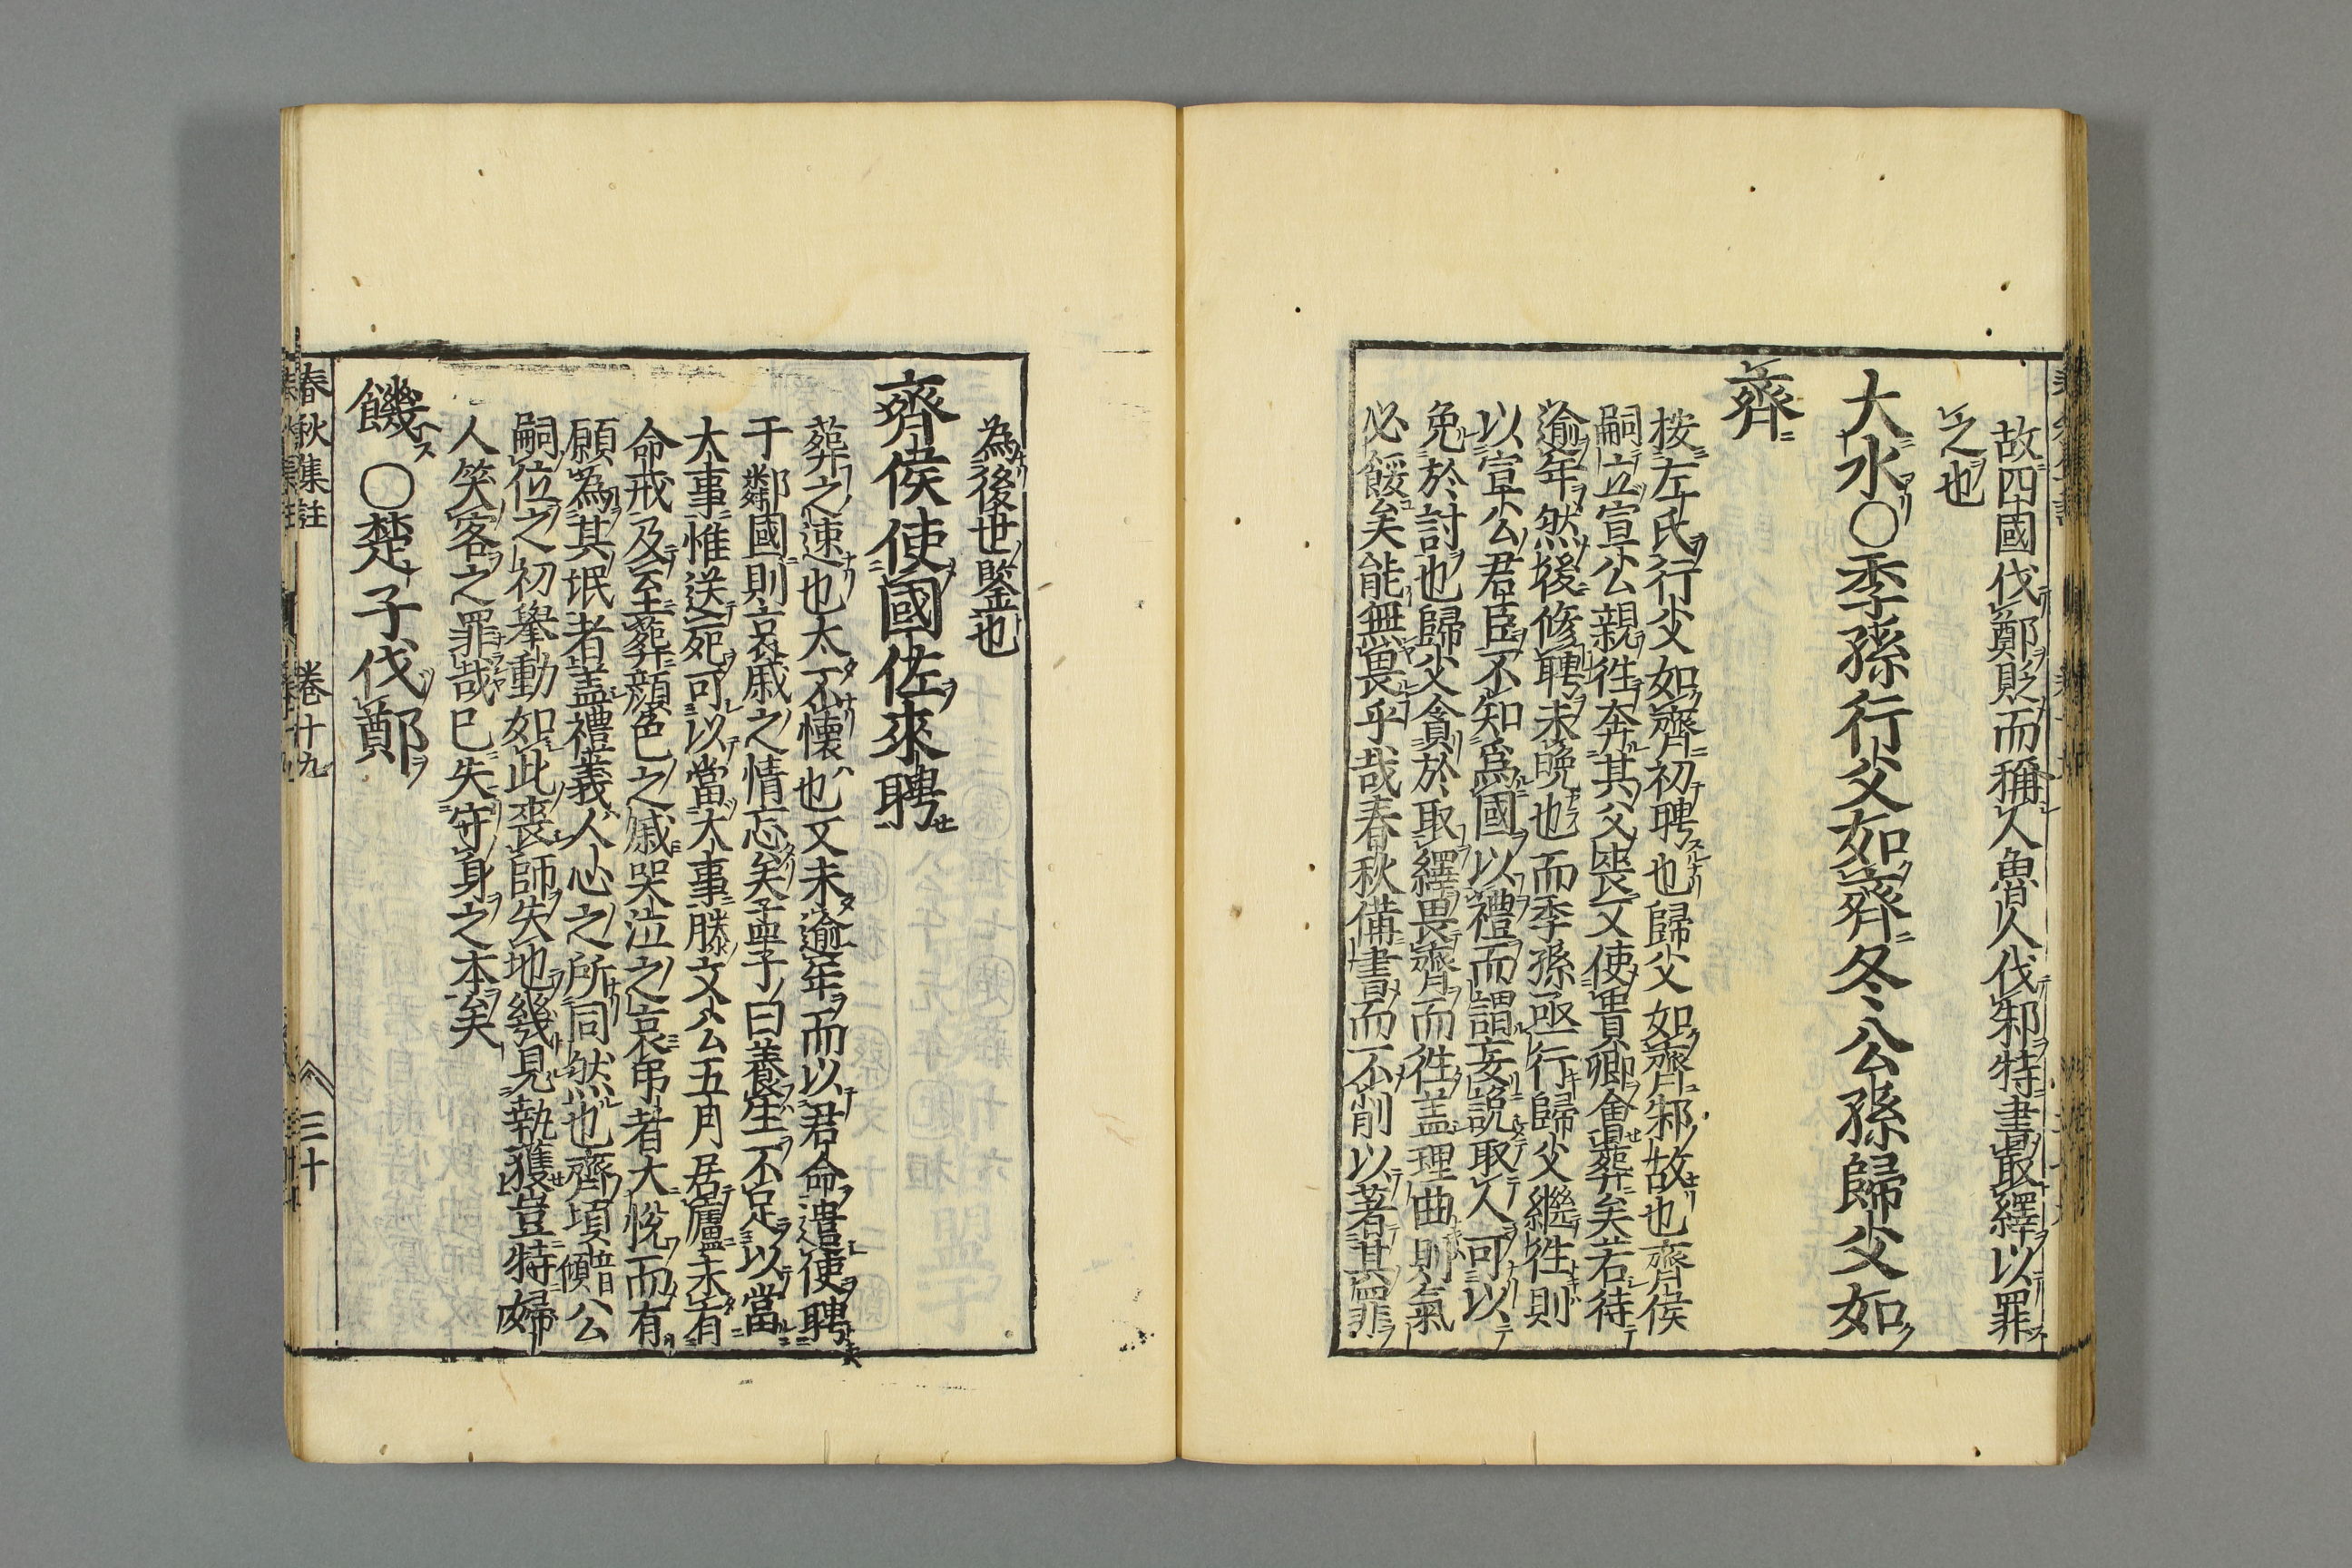 故四國伐鄭貶而稱人魯人伐邾特書取繹以罪
之也
大水〇季孫行父如齊冬公孫歸父如
齊
按左氏行父如齊初聘也歸父如齊邾故也齊侯
嗣立宣公親往奔其父喪又使貴卿會葬矣若待
逾年然後修聘未晩也而季孫亟行歸父繼往則
以宣公君臣不知爲國以禮而謂妄説取人可以
免於討也歸父貪於取繹畏齊而往盖理曲則氣
必餒矣能無畏乎哉春秋備書而不削以著其罪
為後世鑒也
齊侯使國佐來聘
葬之速也太不懷也又未逾年而以君命遣使聘
于鄰國則哀戚之情忘矣孟子曰養生不足以當
大事惟送死可以當大事滕文公五月居廬未有
命戒及至葬顔色之戚哭泣之哀弔者大悦而有
願為其氓者盖禮義人心之所同然也齊頃音傾公
嗣位之初舉動如此喪師失地幾見執獲豈特婦
人笑客之罪哉已失守身之本矣
饑〇楚子伐鄭
春秋集註 卷十九 三十